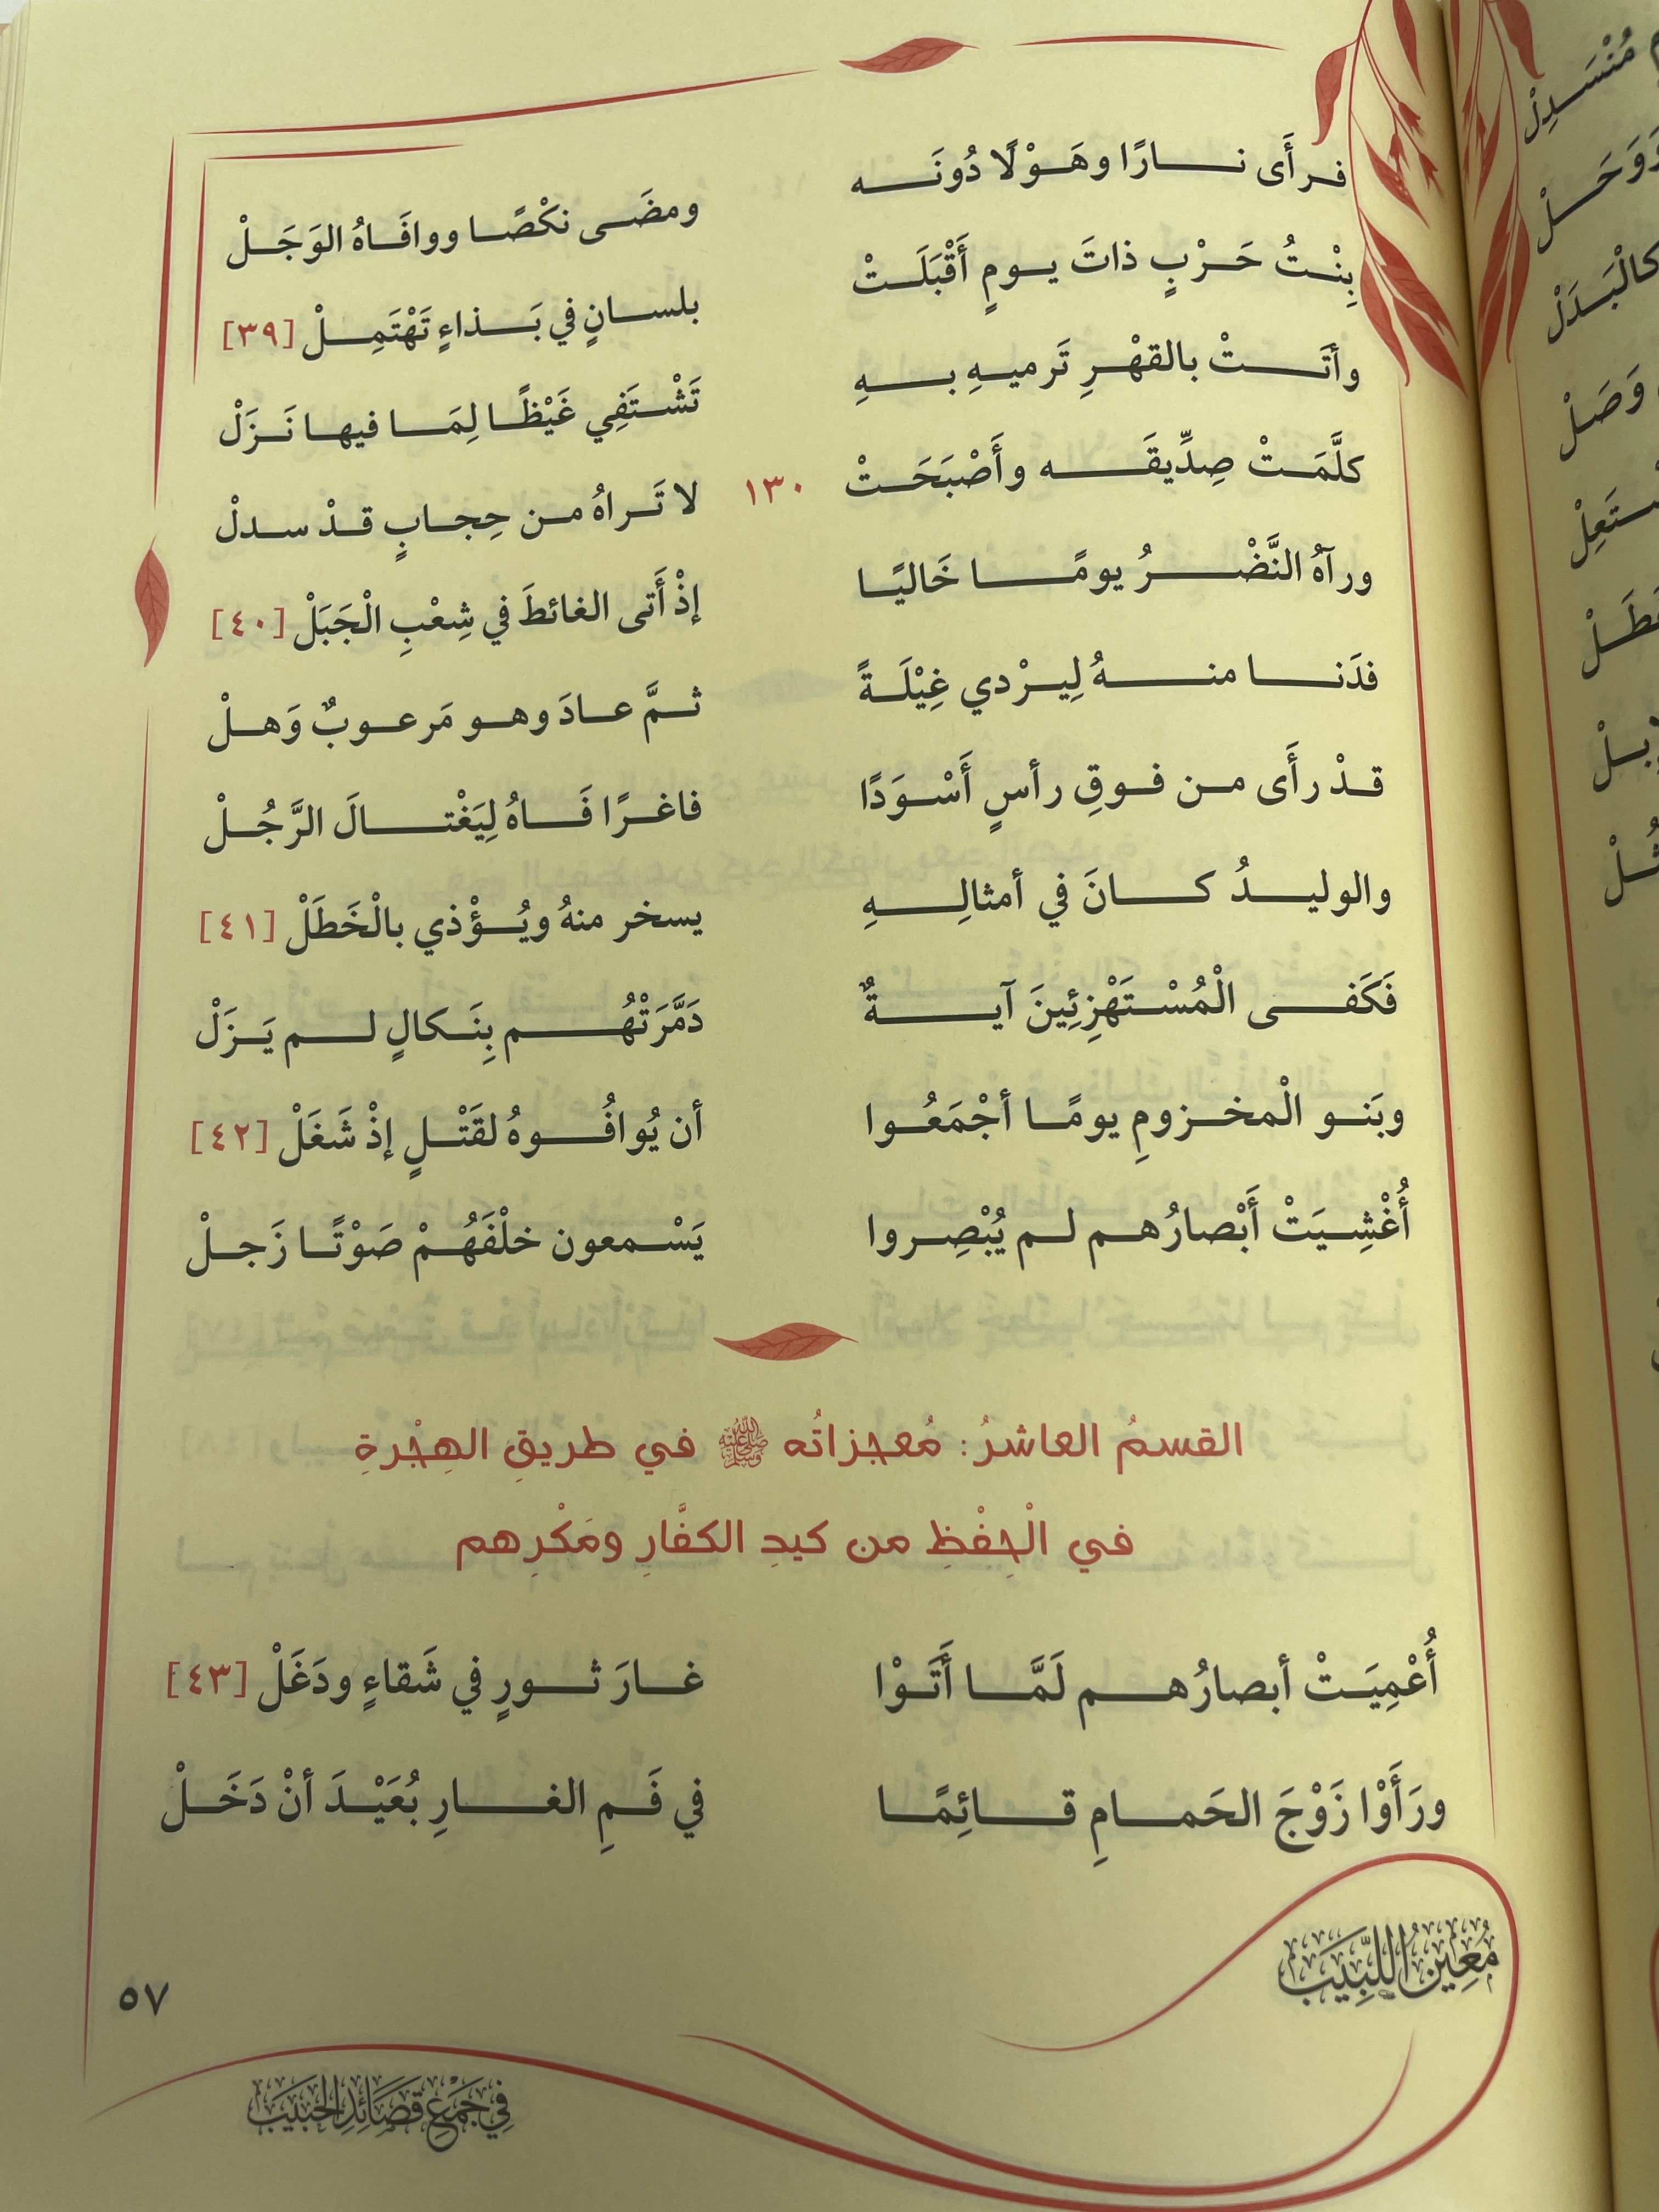 فرأَى نارًا وهَوْلًا دُونَه ومضَى نكْصًا ووافَاهُ الوَجَلْ
بِنْتُ حَرْبٍ ذاتَ يومٍ أَقْبَلَتْ بلسانٍ في بَذاءٍ تَهْتَمِلْ [٣٩]
وأتَتْ بالقهْرِ تَرميهِ بهِ تَشْتَفِي غَيْظًا لِمَا فيها نَزَلْ
كلَّمَتْ صِدِّيقَه وأَصْبَحَتْ ١٣٠ لا تَراهُ من حِجابٍ قدْ سدلْ
ورآهُ النَّضْرُ يومًا خَاليًا إذْ أَتى الغائطَ في شِعْبِ الْجَبَلْ [٤٠]
فدَنا منهُ لِيرْدي غِيْلَةً ثمَّ عادَ وهو مَرعوبٌ وَهلْ
قدْ رأَى من فوقِ رأسٍ أَسْوَدًا فاغرًا فَاهُ لِيَغْتالَ الرَّجُلْ
والوليدُ كانَ في أمثالِهِ يسخر منهُ ويُؤْذي بالْخَطَلْ [٤١]
فَكَفى الْمُسْتَهْزِئِينَ آيةٌ دَمَّرَتْهُم بِنَكالٍ لم يَزَلْ
وبَنو الْمخزومِ يومًا أجْمَعُوا أن يُوافُوهُ لقَتْلٍ إذْ شَغَلْ [٤٢]
أُغْشِيَتْ أَبْصارُهم لم يُبْصِروا يَسْمعون خلْفَهُمْ صَوْتًا زَجلْ
القسمُ العاشرُ: مُعجزاتُه ﷺ في طريقِ الهِجْرةِ
في الْحِفْظِ من كيدِ الكفَّارِ ومَكْرِهم
أُعْمِيَتْ أبصارُهم لَمَّا أَتَوْا غارَ ثورٍ في شَقاءٍ ودَغَلْ [٤٣]
ورَأَوْا زَوْجَ الحَمامِ قائِمًا في فَمِ الغارِ بُعَيْدَ أنْ دَخَلْ
مُعِينُ اللَّبِيَب
٥٧
فِي جَمْعِ قَصَائِدِ الحَبَيَب
مُنْسَدِلْ
وَوَحَلْ
كالْبَدَلْ
وَصَلْ